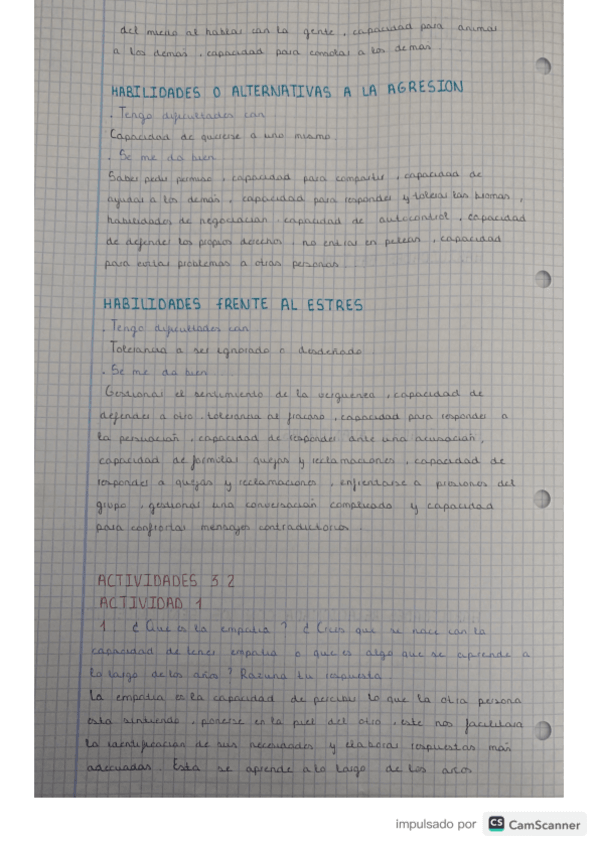 del miedo al hablar con la gente, capacidad para animar
a los demás, capacidad para consolar a los demás
HABILIDADES O ALTERNATIVAS A LA AGRESION
. Tengo dificultades con
Capacidad de quererse a uno mismo
. Se me da bien
Saber pedir permiso, capacidad para compartir, capacidad de
ayudar a los demás, capacidad para responder y tolerar las bromas,
habilidades de negociación, capacidad de autocontrol, capacidad
de defender los propios derechos, no entrar en peleas, capacidad
para evitar problemas a otras personas
HABILIDADES fRENTE AL ESTRES
. Tengo dificultades con
Tolerancia a ser ignorado o desdeñado
. Se me da bien
Gestionar el sentimiento de la verguenza, capacidad de
defender a otro, tolerancia al fracaso, capacidad para responder a
la persuación, capacidad de responder ante una acusación,
capacidad de formular quejas y reclamaciones, capacidad de
responder a quejas y reclamaciones, enfrentarse a presiones del
grupo, gestionar una conversación complicada y capacidad
para confrontar mensajes contradictorios.
ACTIVIDADES 3.2
ACTIVIDAD 1
1. ¿Que es la empatia? ¿Crees que se nace con la
capacidad de tener empatia o que es algo que se aprende a
lo largo de los años? Razona tu respuesta.
La empatia es la capacidad de percibir lo que la otra persona
esta sintiendo, ponerse en la piel del otro, este nos facilitara
la identificacion de sus necesidades y elaborar respuestas más
adecuadas. Esta se aprende a lo largo de los años
impulsado por CS CamScanner